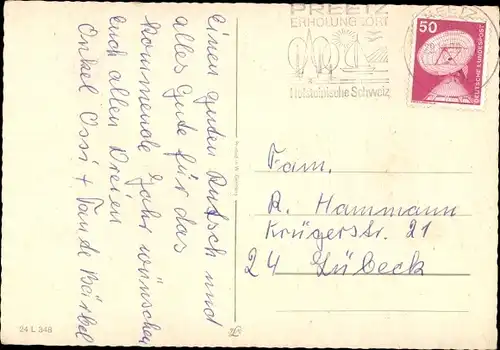 Einen guten Rutsch und
alles Gute für das
kommende Jahr wünschen
Euch allen Dreien
Onkel Ossi + Tante Bärbel
24 L 348
PREETZ
ERHOLUNGSORT
Holsteinische Schweiz
50
DEUTSCHE BUNDESPOST
Fam.
R. Hammann
Krügerstr. 21
24 Lübeck